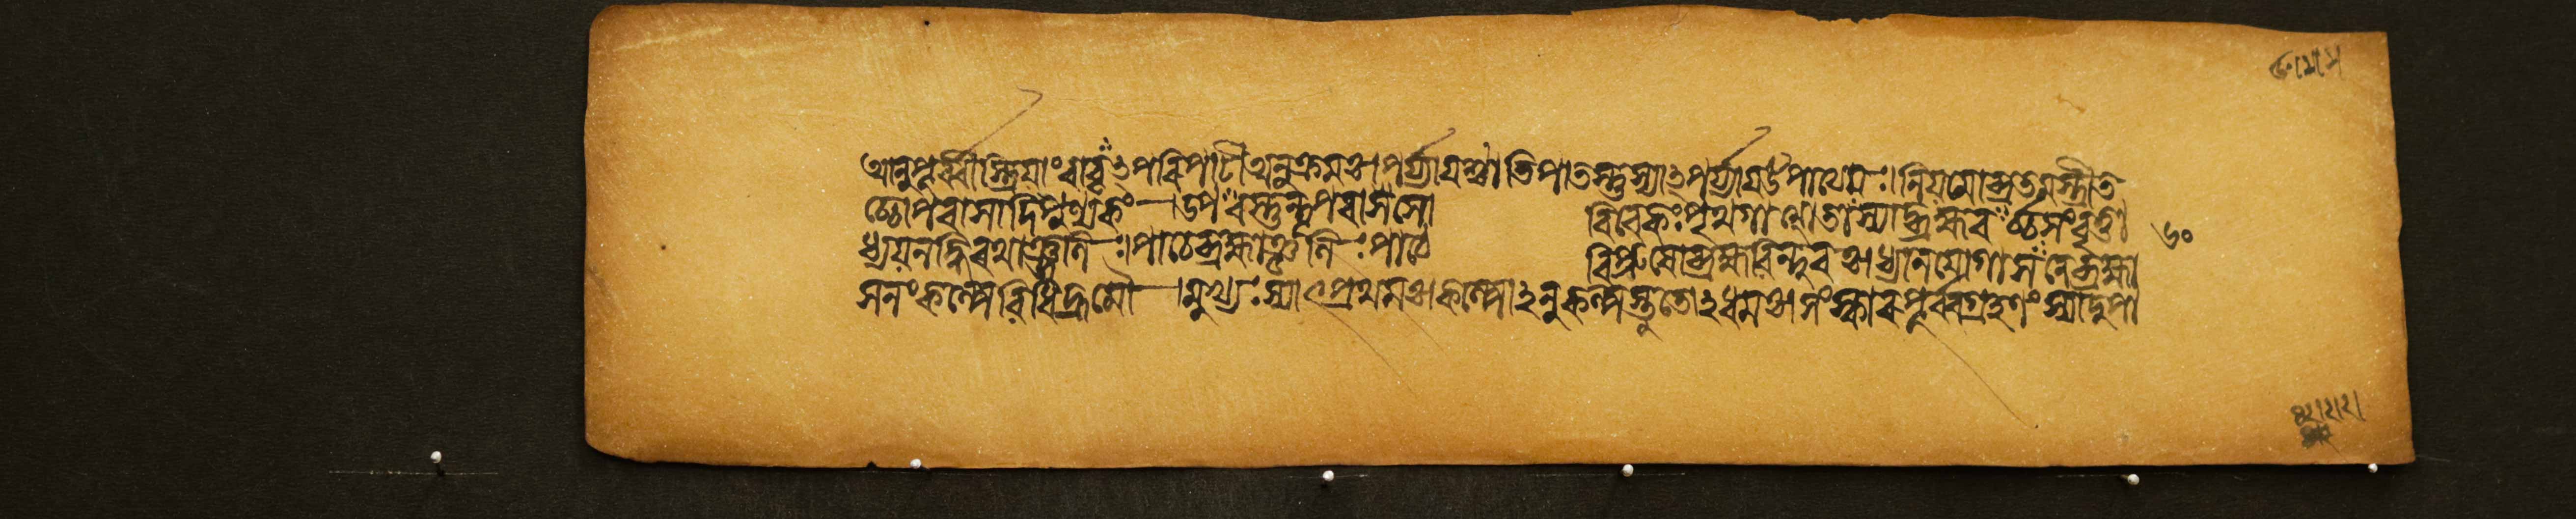 আনুপূর্ব্বীস্ত্রিয়াংবাবৃৎপৰিপাটীঅনুক্রমঃ।পর্য্যায়শ্চাতিপাতস্তুস্যাৎপর্য্যায়উপাত্যয়ঃ।নিয়মোব্রতমস্ত্রীত
চ্চোপবাসাদিপুণ্যকং।ঔপবস্তন্তূপবাসঃসো বিবেকঃপৃথগাত্মতা।স্যাদ্ব্রহ্মবর্চ্চসংবৃত্তা ৬০
ধ্যয়নর্দ্ধিৰথাঞ্জলিঃ।পাঠেব্রহ্মাঞ্জলিঃপাঠে বিপ্রুষোব্রহ্মবিন্দবঃ।ধ্যানযোগাসনেব্রহ্মা
সনংকল্পেবিধিক্রমৌ।মুখ্যঃস্যাৎপ্রথমঃকল্পোঽনুকল্পস্তুততোঽধমঃ।সংস্কাৰপূর্ব্বংগ্রহণংস্যাদুপা